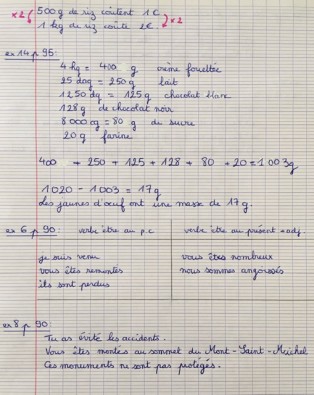 x2 500g de riz coûtent 1€ x2
1 kg de riz coûte 2€.
ex 14 p 95:
4 hg = 400 g crème fouettée
25 dag = 250 g lait
1 250 dg = 125 g chocolat blanc
128 g de chocolat noir
8 000 cg = 80 g de sucre
20 g farine
400 + 250 + 125 + 128 + 80 + 20 = 1 003g
1 020 - 1 003 = 17 g
Les jaunes d'oeuf ont une masse de 17 g.
ex 6 p 90: verbe être au p.c verbe être au présent + adj.
je suis venu vous êtes nombreux
vous êtes remontés nous sommes angoissés
ils sont perdus
ex 8 p 90:
Tu as évité les accidents.
Vous êtes montés au sommet du Mont-Saint-Michel
Ces monuments ne sont pas protégés.